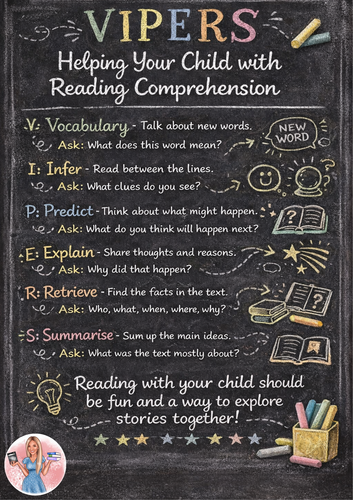 VIPERS
Helping Your Child with
Reading Comprehension
V: Vocabulary - Talk about new words.
Ask: What does this word mean?
NEW
WORD
I: Infer - Read between the lines.
Ask: What clues do you see?
P: Predict - Think about what might happen.
Ask: What do you think will happen next?
?
E: Explain - Share thoughts and reasons.
Ask: Why did that happen?
R: Retrieve - Find the facts in the text.
Ask: Who, what, when, where, why?
?
S: Summarise - Sum up the main ideas.
Ask: What was the text mostly about?
Reading with your child should
be fun and a way to explore
stories together!